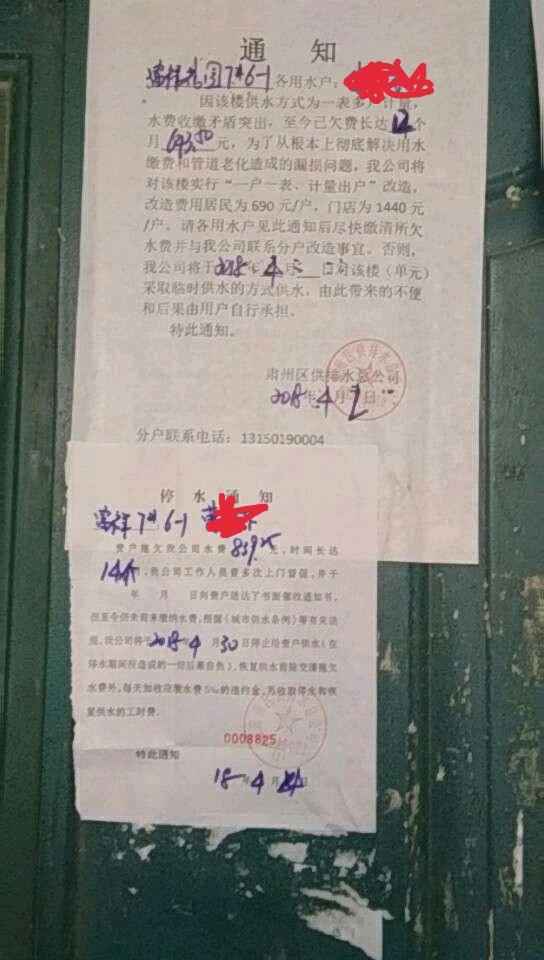 通 知
7#6-1 各用水户：
因该楼供水方式为一表多户计量，
水费收缴矛盾突出，至今已欠费长达12个
月693.50元，为了从根本上彻底解决用水
缴费和管道老化造成的漏损问题，我公司将
对该楼实行“一户一表、计量出户”改造，
改造费用居民为690元/户，门店为1440元
/户。请各用水户见此通知后尽快缴清所欠
水费并与我公司联系分户改造事宜。否则，
我公司将于2018年4月 日对该楼（单元）
采取临时供水的方式供水，由此带来的不便
和后果由用户自行承担。
特此通知。
肃州区供排水总公司
2018年4月2日
分户联系电话：13150190004
停 水 通 知
7# 6-1
贵户拖欠我公司水费859.25元，时间长达
14个，我公司工作人员曾多次上门督促，并于
年 月 日向贵户送达了书面催收通知书，
但至今仍未前来缴纳水费，根据《城市供水条例》等有关法
规，我公司将于2018年4月30日停止给贵户供水（在
停水期间所造成的一切后果自负），恢复供水前除交清拖欠
水费外，每天加收应缴水费5‰的违约金，另收取停水和恢
复供水的工时费。
0008825
特此通知
18年4月 日